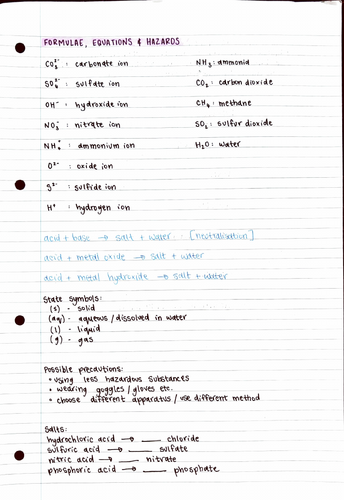 FORMULAE, EQUATIONS & HAZARDS
CO₃²⁻ : carbonate ion
SO₄²⁻ : sulfate ion
OH⁻ : hydroxide ion
NO₃⁻ : nitrate ion
NH₄⁺ : ammonium ion
O²⁻ : oxide ion
S²⁻ : sulfide ion
H⁺ : hydrogen ion
NH₃ : ammonia
CO₂ : carbon dioxide
CH₄ : methane
SO₂ : sulfur dioxide
H₂O : water
acid + base → salt + water .. [neutralisation]
acid + metal oxide → salt + water
acid + metal hydroxide → salt + water
State symbols:
(s) - solid
(aq) - aqueous / dissolved in water
(l) - liquid
(g) - gas
Possible precautions:
• using less hazardous substances
• wearing goggles / gloves etc.
• choose different apparatus / use different method
Salts:
hydrochloric acid → ____ chloride
sulfuric acid → ____ sulfate
nitric acid → ____ nitrate
phosphoric acid → ____ phosphate